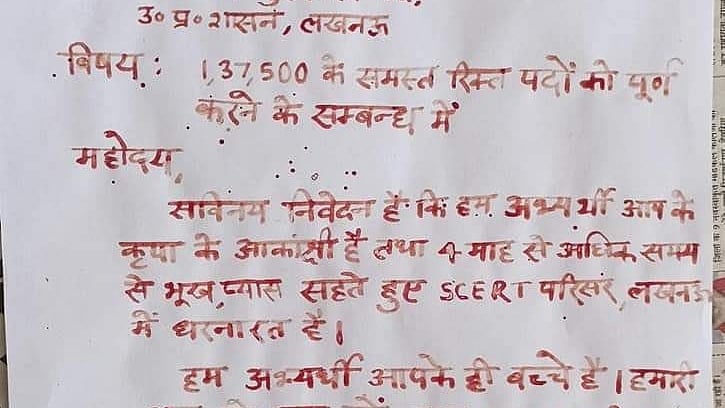 उ० प्र० शासन, लखनऊ
विषय : 1,37,500 के समस्त रिक्त पदों को पूर्ण
करने के सम्बन्ध में
महोदय,
सविनय निवेदन है कि हम अभ्यर्थी आप के
कृपा के आकांक्षी है तथा 4 माह से अधिक समय
से भूख, प्यास सहते हुए SCERT परिसर, लखनऊ
में धरनारत है।
हम अभ्यर्थी आपके ही बच्चे है। हमारी